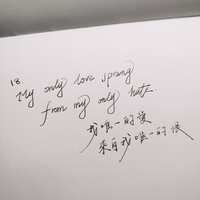 18.
My only love sprung
from my only hate.
我唯一的爱
来自我唯一的恨